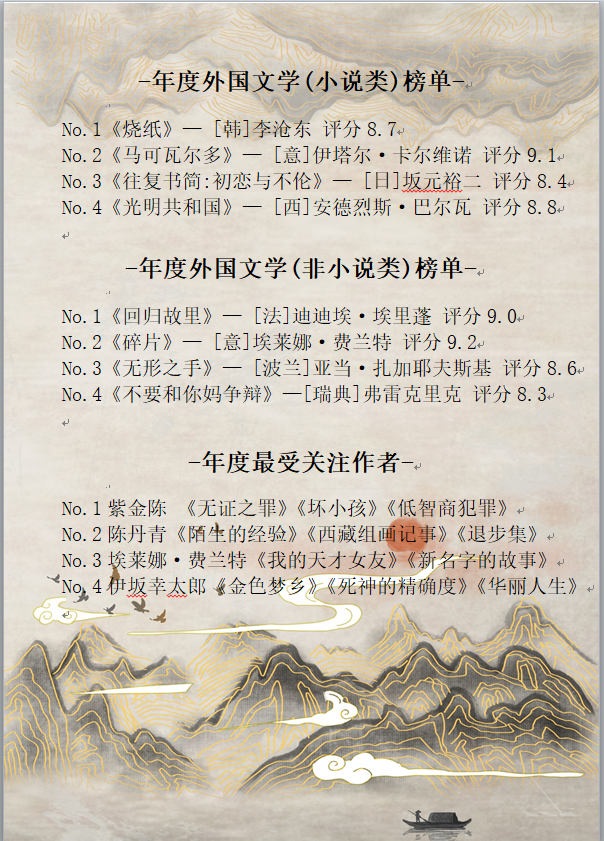 -年度外国文学(小说类)榜单-
No.1《烧纸》— [韩]李沧东 评分8.7
No.2《马可瓦尔多》— [意]伊塔尔·卡尔维诺 评分9.1
No.3《往复书简:初恋与不伦》— [日]坂元裕二 评分8.4
No.4《光明共和国》— [西]安德烈斯·巴尔瓦 评分8.8
-年度外国文学(非小说类)榜单-
No.1《回归故里》— [法]迪迪埃·埃里蓬 评分9.0
No.2《碎片》— [意]埃莱娜·费兰特 评分9.2
No.3《无形之手》— [波兰]亚当·扎加耶夫斯基 评分8.6
No.4《不要和你妈争辩》—[瑞典]弗雷克里克 评分8.3
-年度最受关注作者-
No.1紫金陈 《无证之罪》《坏小孩》《低智商犯罪》
No.2陈丹青《陌生的经验》《西藏组画记事》《退步集》
No.3埃莱娜·费兰特《我的天才女友》《新名字的故事》
No.4伊坂幸太郎《金色梦乡》《死神的精确度》《华丽人生》